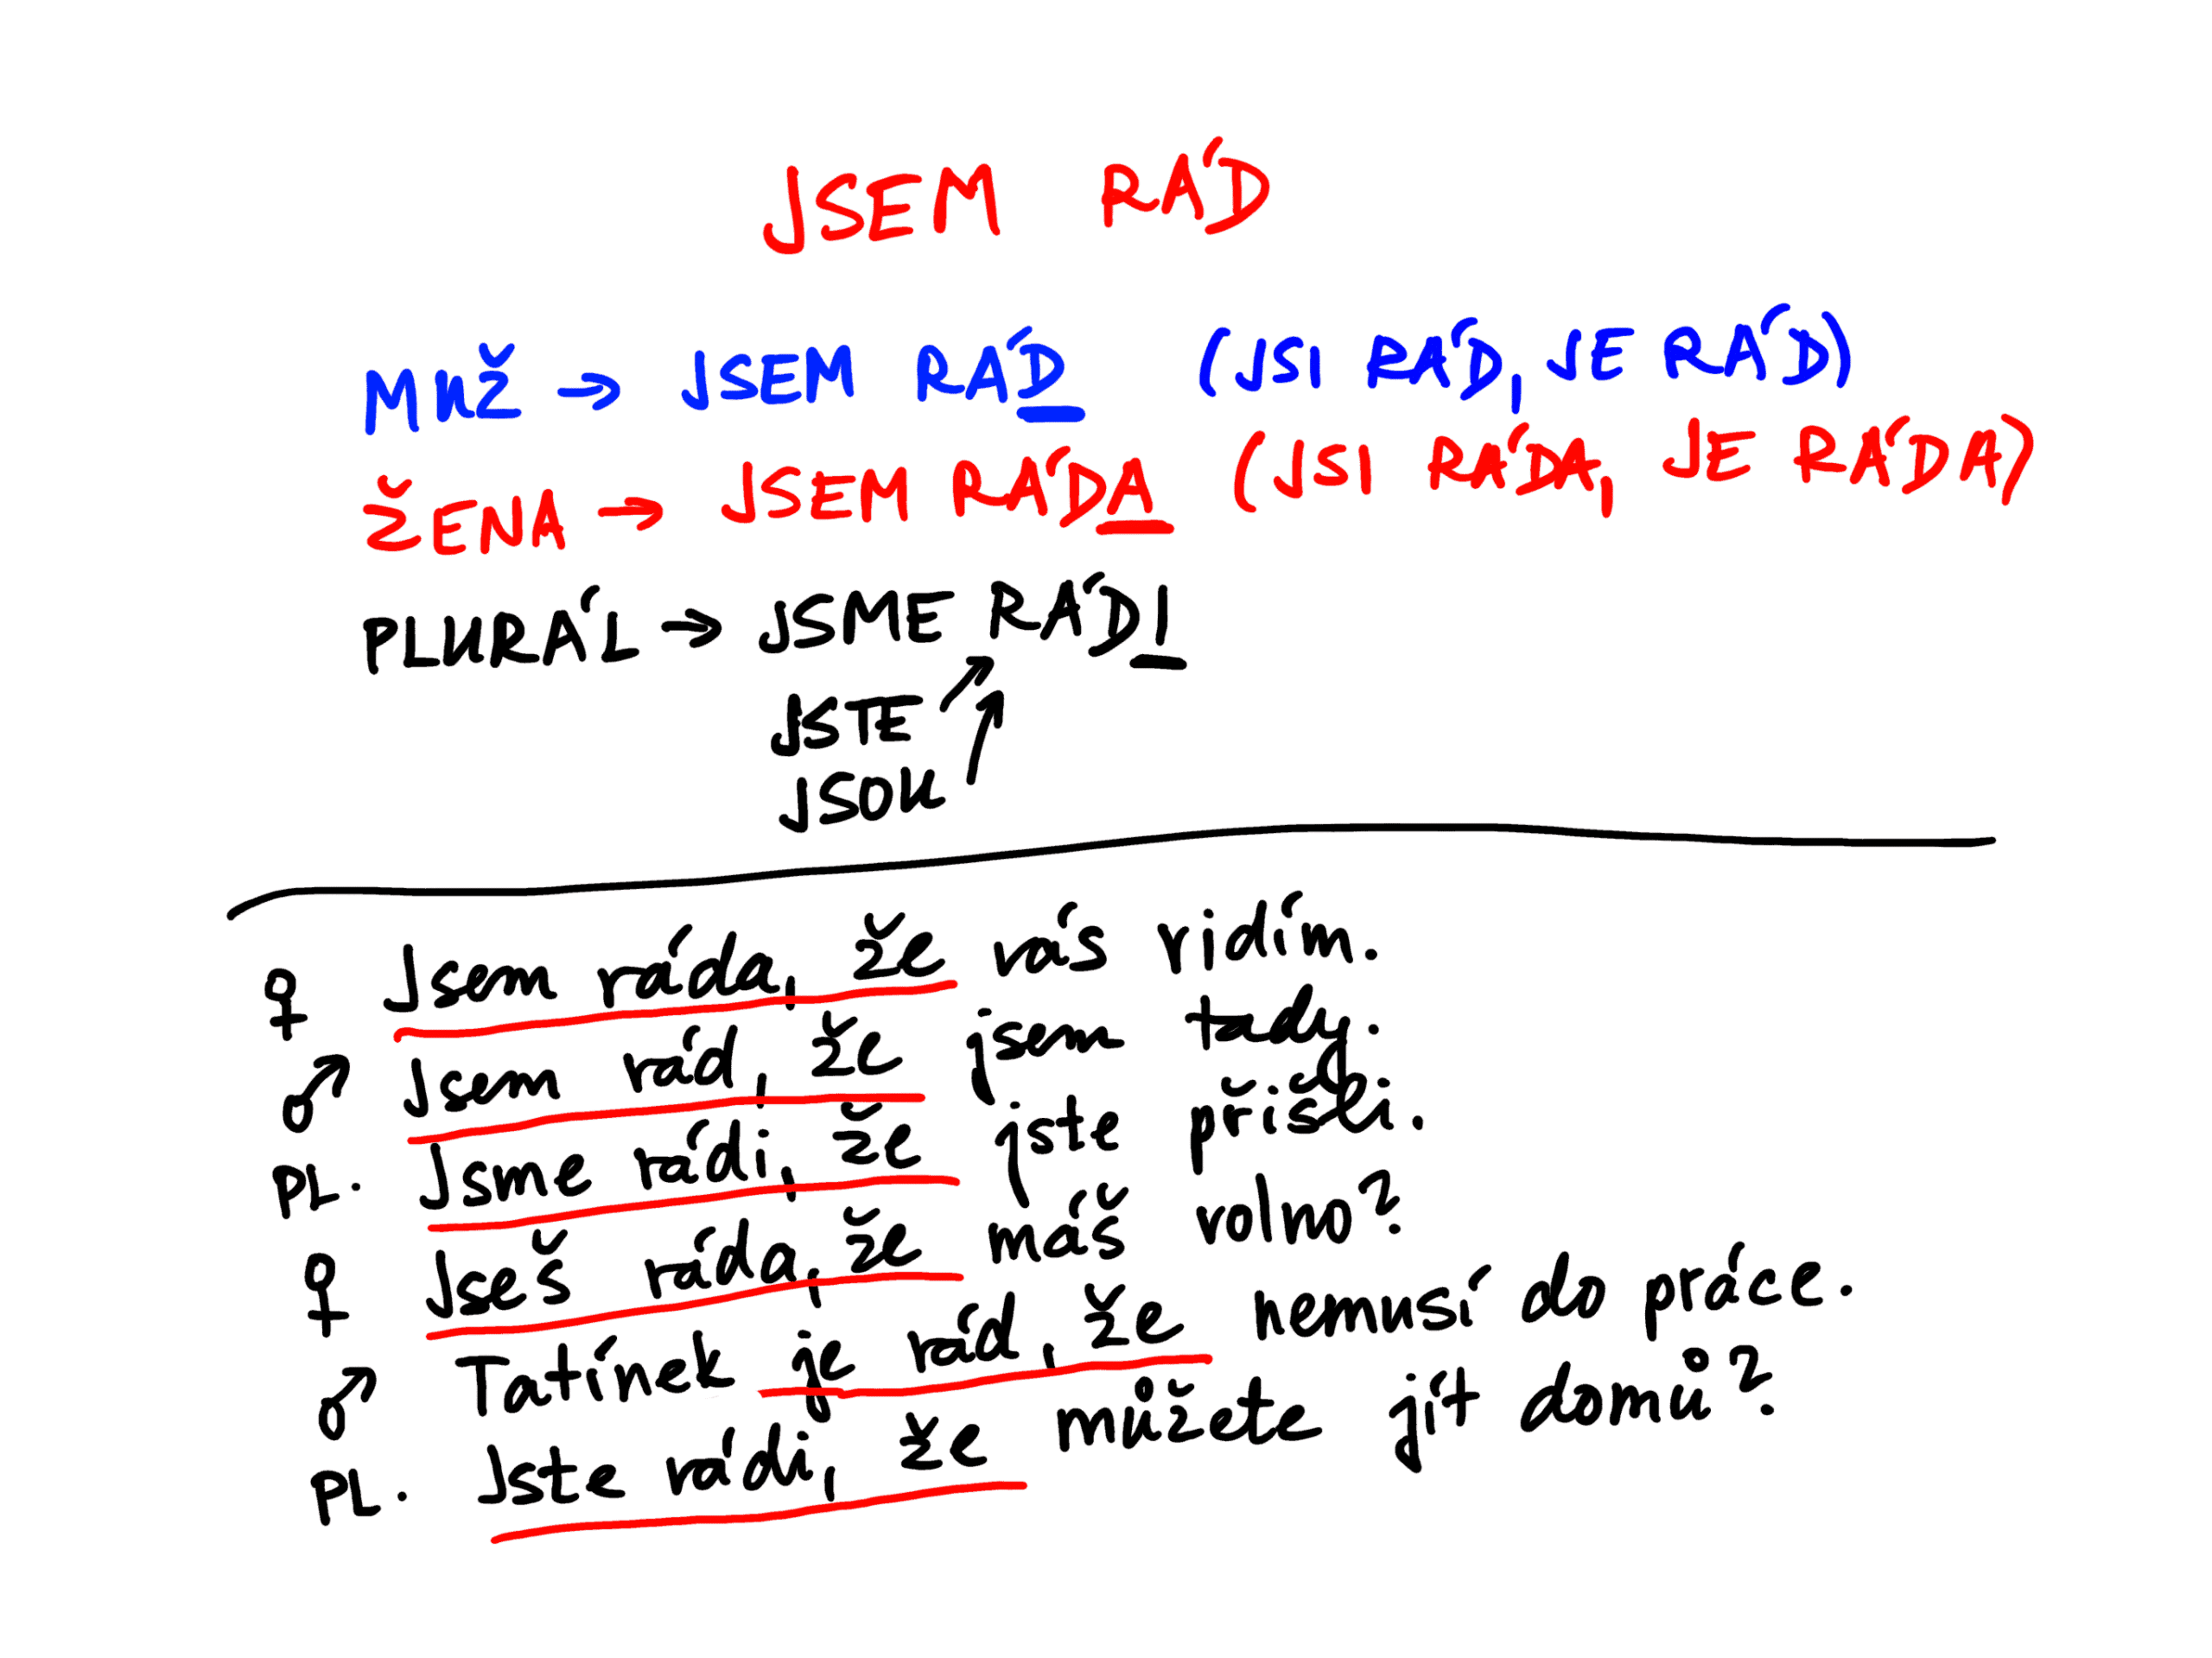 JSEM RÁD
MUŽ → JSEM RÁD (JSI RÁD, JE RÁD)
ŽENA → JSEM RÁDA (JSI RÁDA, JE RÁDA)
PLURÁL → JSME RÁDI
JSTE
JSOU
♀ Jsem ráda, že vás vidím.
♂ Jsem rád, že jsem tady.
PL. Jsme rádi, že jste přišli.
♀ Jseš ráda, že máš volno?
♂ Tatínek je rád, že nemusí do práce.
PL. Jste rádi, že můžete jít domů?